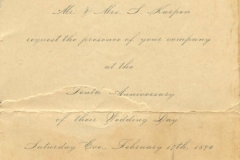 Mr. & Mrs. S. Karpen
request the presence of your company
at the
Tenth Anniversary
of their Wedding Day
Saturday Eve. February 17th, 1894